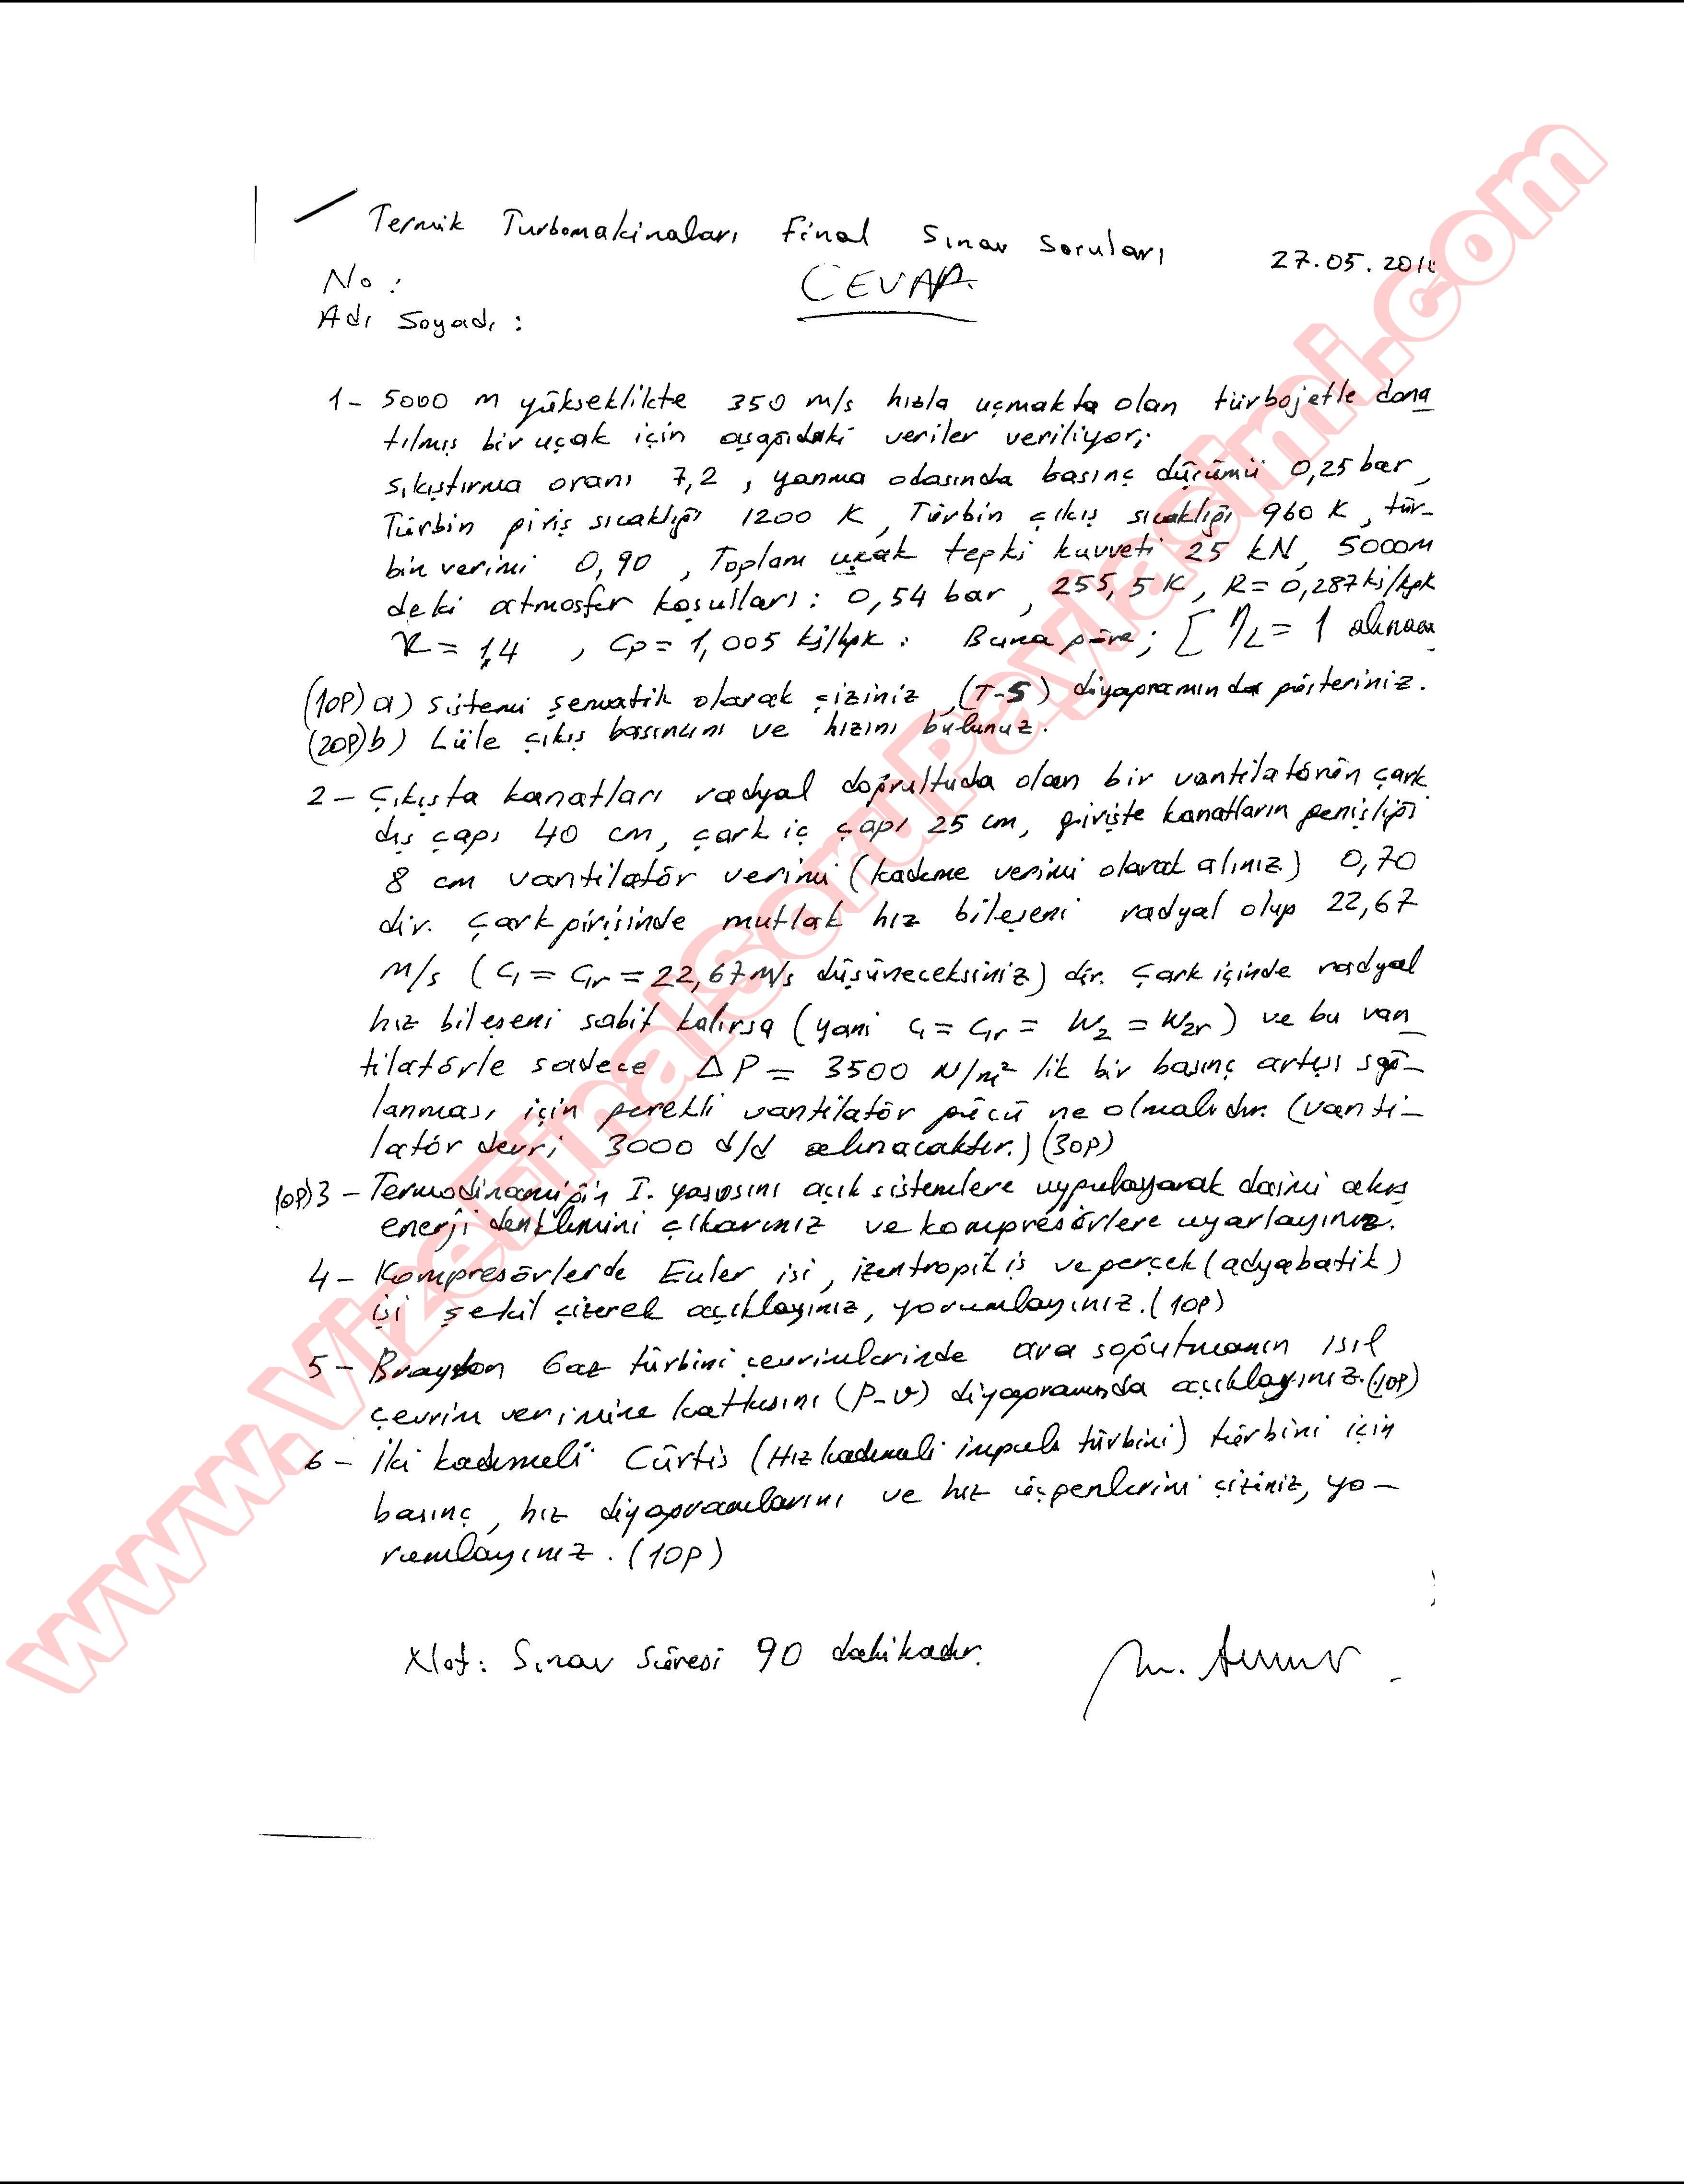 Termik Turbomakinaları Final Sınav Soruları
27.05.201
No :
CEVAP
Adı Soyadı :
1- 5000 m yükseklikte 350 m/s hızla uçmakta olan türbojetle dona
tılmış bir uçak için aşağıdaki veriler veriliyor;
sıkıştırma oranı 7,2 , yanma odasında basınç düşümü 0,25 bar,
Türbin giriş sıcaklığı 1200 K, Türbin çıkış sıcaklığı 960 K, tür-
bin verimi 0,90 , Toplam uçak tepki kuvveti 25 kN, 5000m
deki atmosfer koşulları : 0,54 bar , 255,5 K , R = 0,287 kj/kgk
ϰ = 1,4 , Cp = 1,005 kj/kgk . Buna göre ; [ ηL = 1 alınacak
(10P) a) Sistemi şematik olarak çiziniz, (T-S) diyagramında gösteriniz.
(20P) b) Lüle çıkış basıncını ve hızını bulunuz.
2- Çıkışta kanatları radyal doğrultuda olan bir vantilatörün çark
dış çapı 40 cm, çark iç çapı 25 cm, girişte kanatların genişliği
8 cm vantilatör verimi (kademe verimi olarak alınız) 0,70
dir. Çark girişinde mutlak hız bileşeni radyal olup 22,67
m/s ( C1 = C1r = 22,67 m/s düşüneceksiniz) dir. Çark içinde radyal
hız bileşeni sabit kalırsa (yani C1 = C1r = W2 = W2r ) ve bu van-
tilatörle sadece ΔP = 3500 N/m² lik bir basınç artışı sağ-
lanması için gerekli vantilatör gücü ne olmalıdır. (Vanti-
latör devri 3000 d/d alınacaktır.) (30P)
10P) 3 - Termodinamiğin I. yasasını açık sistemlere uygulayarak daimi akış
enerji denklemini çıkarınız ve kompresörlere uyarlayınız.
4- Kompresörlerde Euler işi, izentropik iş ve gerçek (adyabatik)
işi şekil çizerek açıklayınız, yorumlayınız. (10P)
5- Brayton Gaz türbini çevrimlerinde ara soğutmanın ısıl
çevrim verimine katkısını (P-v) diyagramında açıklayınız. (10P)
6- İki kademeli Cürtis (Hız kademeli impuls türbini) türbini için
basınç, hız diyagramlarını ve hız üçgenlerini çiziniz, yo-
rumlayınız. (10P)
Not: Sınav Süresi 90 dakikadır.
www.VizeFinalSoruPaylasimi.com